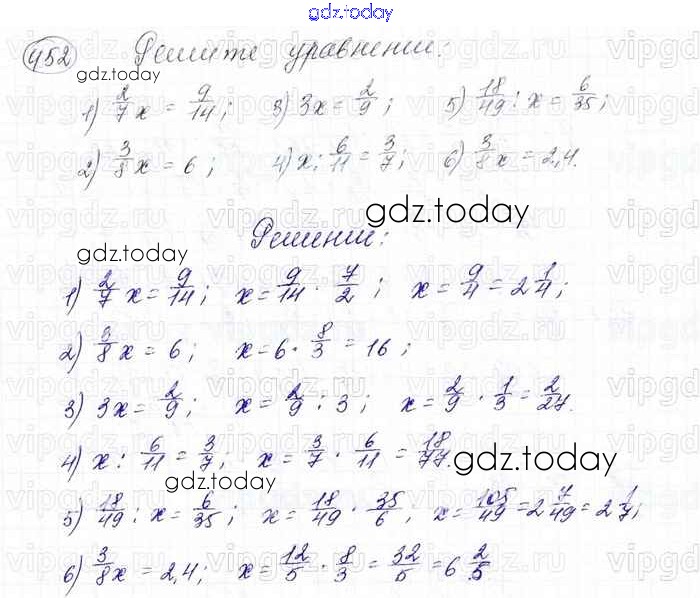 gdz.today
452 Решите уравнение:
gdz.today
1) 2/7 x = 9/14; 3) 3x = 2/9; 5) 18/49 : x = 6/35;
2) 3/8 x = 6; 4) x : 6/11 = 3/7; 6) 3/8 x = 2,4.
gdz.today
Решение:
gdz.today
1) 2/7 x = 9/14; x = 9/14 · 7/2; x = 9/4 = 2 1/4;
2) 3/8 x = 6; x = 6 · 8/3 = 16;
3) 3x = 2/9; x = 2/9 : 3; x = 2/9 · 1/3 = 2/27.
4) x : 6/11 = 3/7; x = 3/7 · 6/11 = 18/77.
gdz.today
gdz.today
5) 18/49 : x = 6/35; x = 18/49 · 35/6, x = 105/49 = 2 7/49 = 2 1/7;
6) 3/8 x = 2,4; x = 12/5 · 8/3 = 32/5 = 6 2/5.